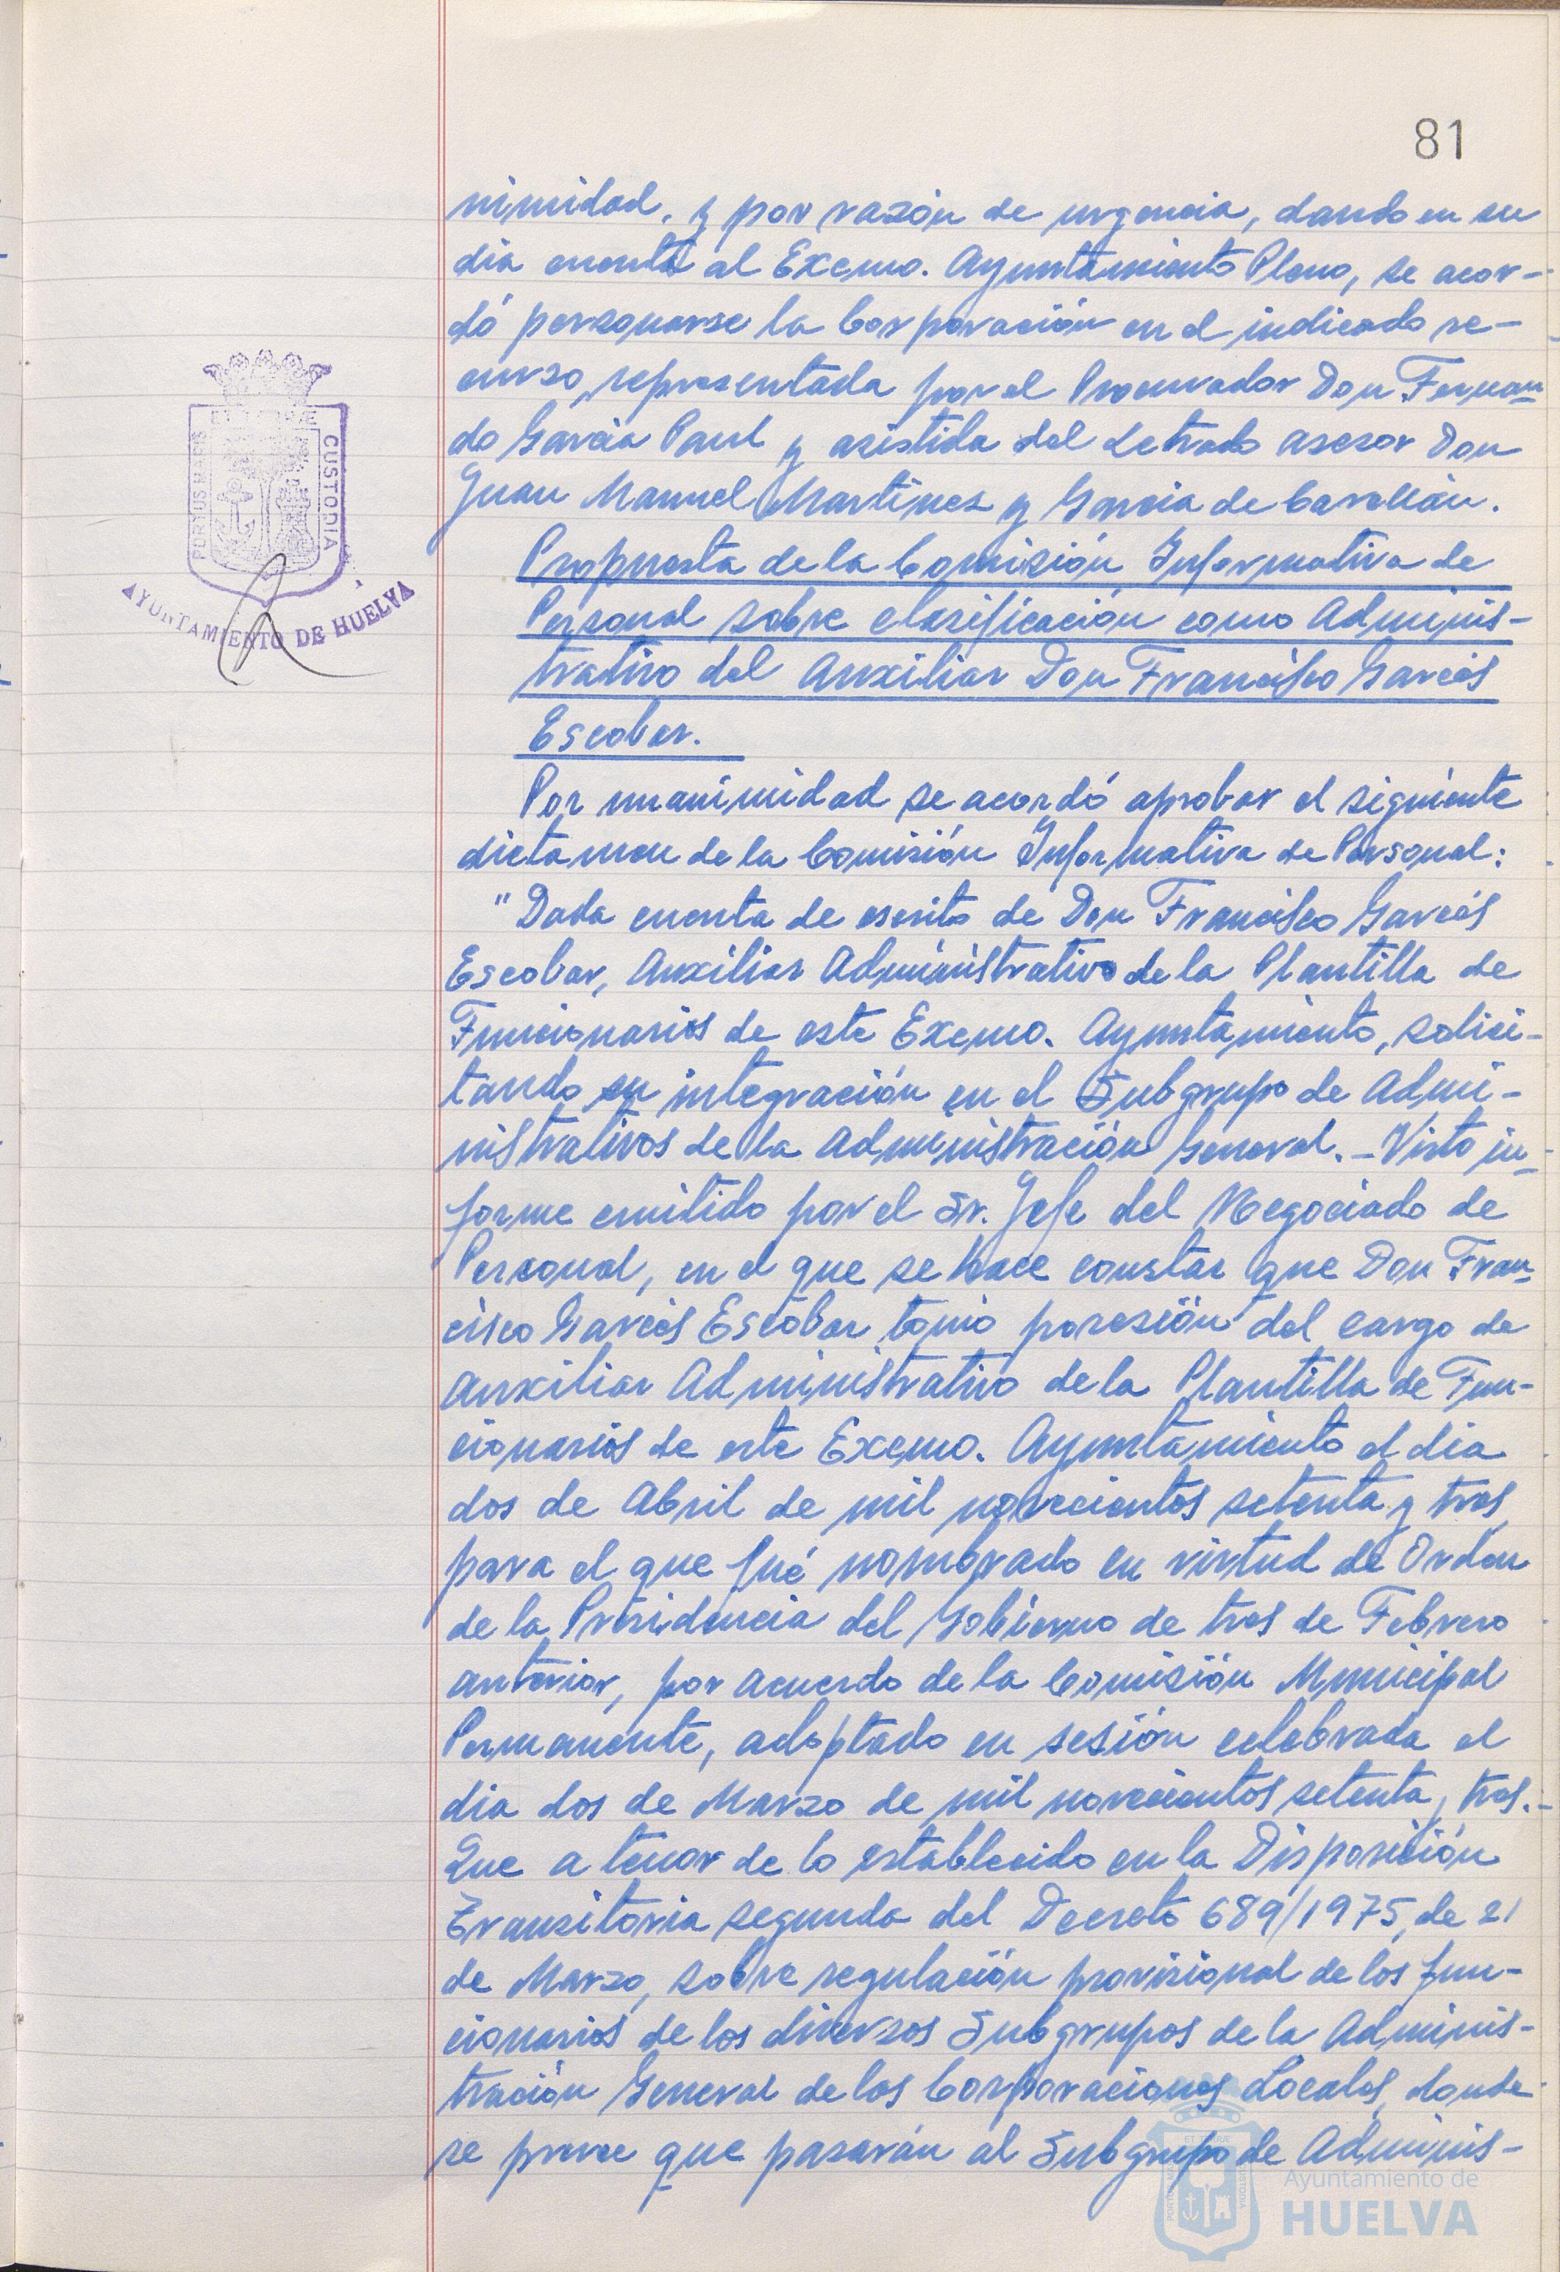 81
nimidad, y por razón de urgencia, dando en su
dia cuenta al Excmo. Ayuntamiento Pleno, se acor-
dó personarse la Corporación en el indicado re-
curso, representada por el Procurador Don Fernan-
do García Paul y asistida del Letrado asesor Don
Juan Manuel Martinez y Garcia de Carellán.
Propuesta de la Comisión Informativa de
Personal sobre clasificación como Adminis-
trativo del Auxiliar Don Francisco Garcés
Escobar.
Por unanimidad se acordó aprobar el siguiente
dictamen de la Comisión Informativa de Personal:
"Dada cuenta de escrito de Don Francisco Garcés
Escobar, Auxiliar Administrativo de la Plantilla de
Funcionarios de este Excmo. Ayuntamiento, solici-
tando su integración en el Subgrupo de Admi-
nistrativos de la Administración General.- Visto in-
forme emitido por el Sr. Jefe del Negociado de
Personal, en el que se hace constar que Don Fran-
cisco Garcés Escobar tomó posesión del cargo de
Auxiliar Administrativo de la Plantilla de Fun-
cionarios de este Excmo. Ayuntamiento el dia
dos de Abril de mil novecientos setenta y tres,
para el que fué nombrado en virtud de Orden
de la Presidencia del Gobierno de tres de Febrero
anterior, por acuerdo de la Comisión Municipal
Permanente, adoptado en sesión celebrada el
dia dos de Marzo de mil novecientos setenta y tres.-
Que a tenor de lo establecido en la Disposición
Transitoria segunda del Decreto 689/1975, de 21
de Marzo, sobre regulación provisional de los fun-
cionarios de los diversos Subgrupos de la Adminis-
tración General de las Corporaciones Locales, donde
se prevee que pasarán al Subgrupo de Adminis-
PORTUS MARIS
CUSTODIA
AYUNTAMIENTO DE HUELVA
Ayuntamiento de
HUELVA